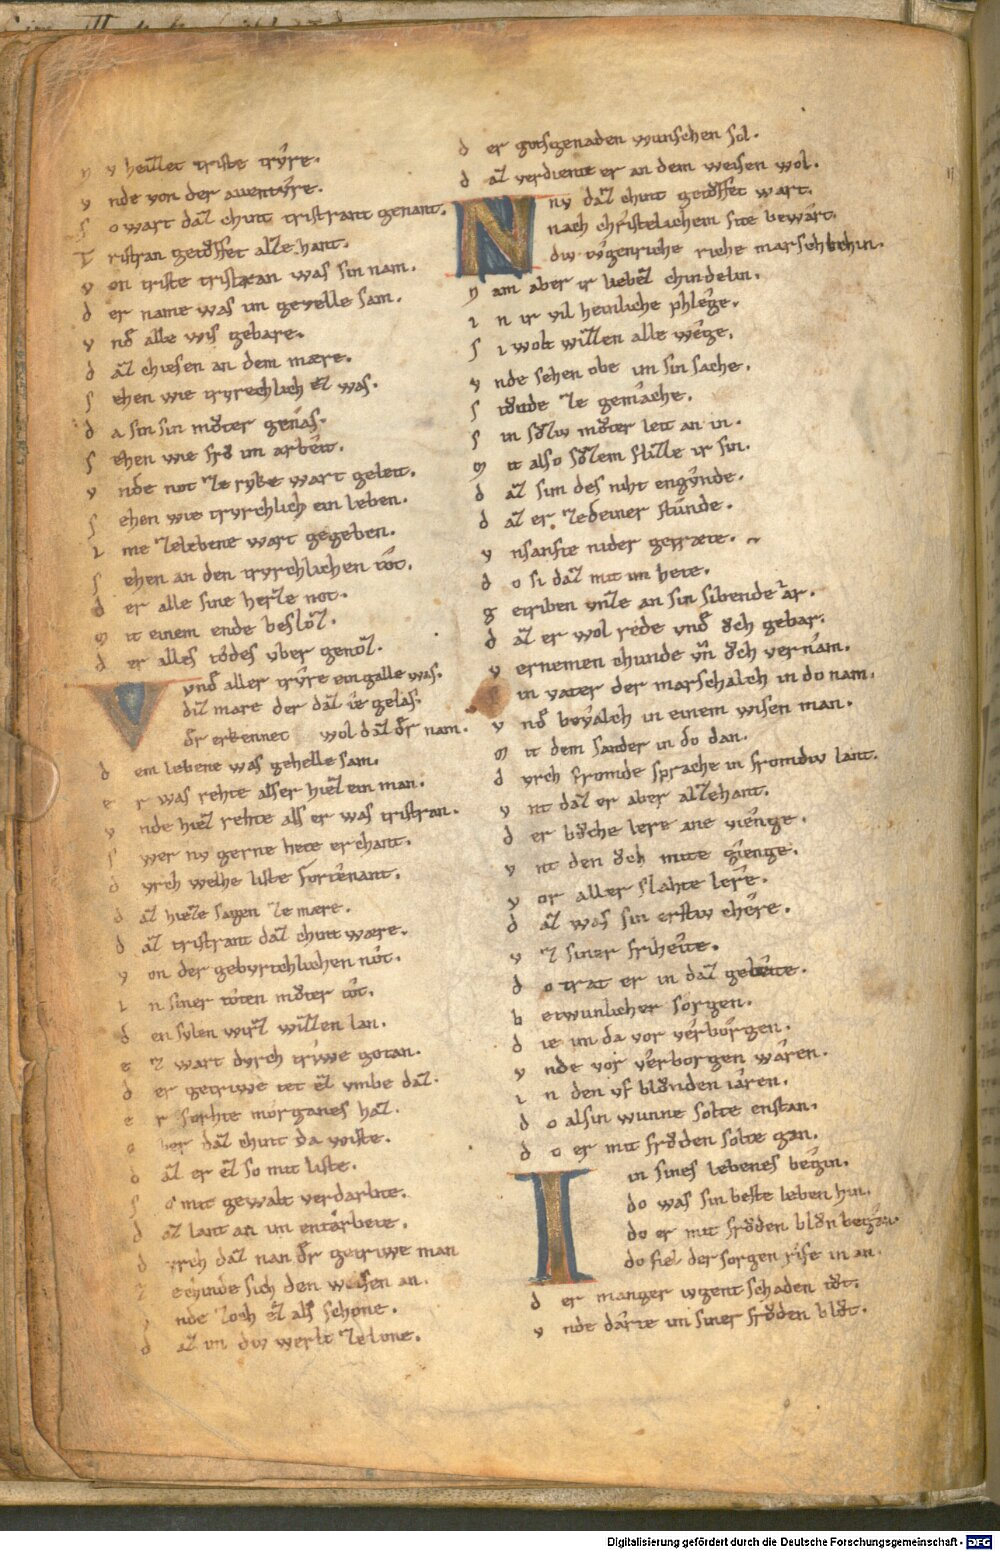 n v heizzet triste trvre.
v nde von der aventvre.
s o wart daz chint tristrant genant.
T ristran getoͮffet alle hant.
v on triste tristran was sin nam.
d er name was im gevelle sam.
v nd alle wis gebare.
d az chiesen an dem mære.
s ehen wie trvrechlich ez was.
d a sin sin mvͦter genas.
s ehen wie frvͦ im arbeit.
v nde not ze rvke wart geleit.
s ehen wie trvrchlich ein leben.
i me zelebene wart gegeben.
s ehen an den trvrchlichen tôt.
d er alle sine herze not.
m it einem ende besloͮz.
d er alles tôdes vber genoz.
V vnd aller trvre ein galle was.
diz mare der daz ie gelas.
der erkennet wol daz der nam.
d em lebene was gehelle sam.
e r was rehte alser hiez ein man.
v nde hiez rehte als er was tristran.
s wer nv gerne hete erchant.
d vrch welhe liste fortenant.
d az hieze sagen ze mære.
d az tristrant daz chint wære.
v on der gebvrtchlichen nôt.
i n siner tôten mvͦter tôt.
d en svlen wirz wizzen lan.
e z wart dvrch triwe getan.
d er getriwe tet ez vmbe daz.
e r forhte morganes haz.
o ber daz chint da wiste.
d az er ez so mit liste.
s o mit gewalt verdarbte.
d az lant an im entarbete.
d vrch daz nam der getriwe man
z echinde sich den weisen an.
v nde zoch ez als schone.
d az im div werlt zelone.
d er gotsgenaden wunschen sol.
d az verdiente er an dem weisen wol.
N nv daz chint getoͮffet wart.
nach christelichem site bewart.
div tvgenriche riche marschalchin.
n am aber ir liebez chindelin.
i n ir vil heinliche phlege.
s i wolt wizzen alle wege.
v nde sehen obe im sin sache.
s tvͦnde ze gemache.
s in svͦziv mvͦter leit an in.
m it also svͦzem flizze ir sin.
d az sim des niht engvnde.
d az er zedeiner stunde.
v nsanfte nider getræte.
d o si daz mit im hete.
g etriben vnze an sin sibende iar.
d az er wol rede vnd oͮch gebar.
v ernemen chunde vn oͮch vernam.
s in vater der marschalch in do nam.
v nd bevalch in einem wisen man.
m it dem sander in do dan.
d vrch fromde sprache in fromdiv lant.
v nt daz er aber alzehant.
d er bvͦche lere ane vienge.
v nt den oͮch mite gienge.
v or aller slahte lere.
d az was sin erstiv chere.
v z siner friheite.
d o trat er in daz geleite.
b etwunlicher sorgen.
d ie im da vor verborgen.
v nde vor verborgen wâren.
i n den vf blvͦnden iâren.
d o alsin wunne solte enstan.
d o er mit froͮden solte gan.
I in sines lebenes begin.
do was sin beste leben hin.
do er mit froͮden blvͦn began.
do fiel der sorgen rife in an.
d er manger iugent schaden tvͦt.
v nde darte im siner froͮden blvͦt.
Digitalisierung gefördert durch die Deutsche Forschungsgemeinschaft - DFG